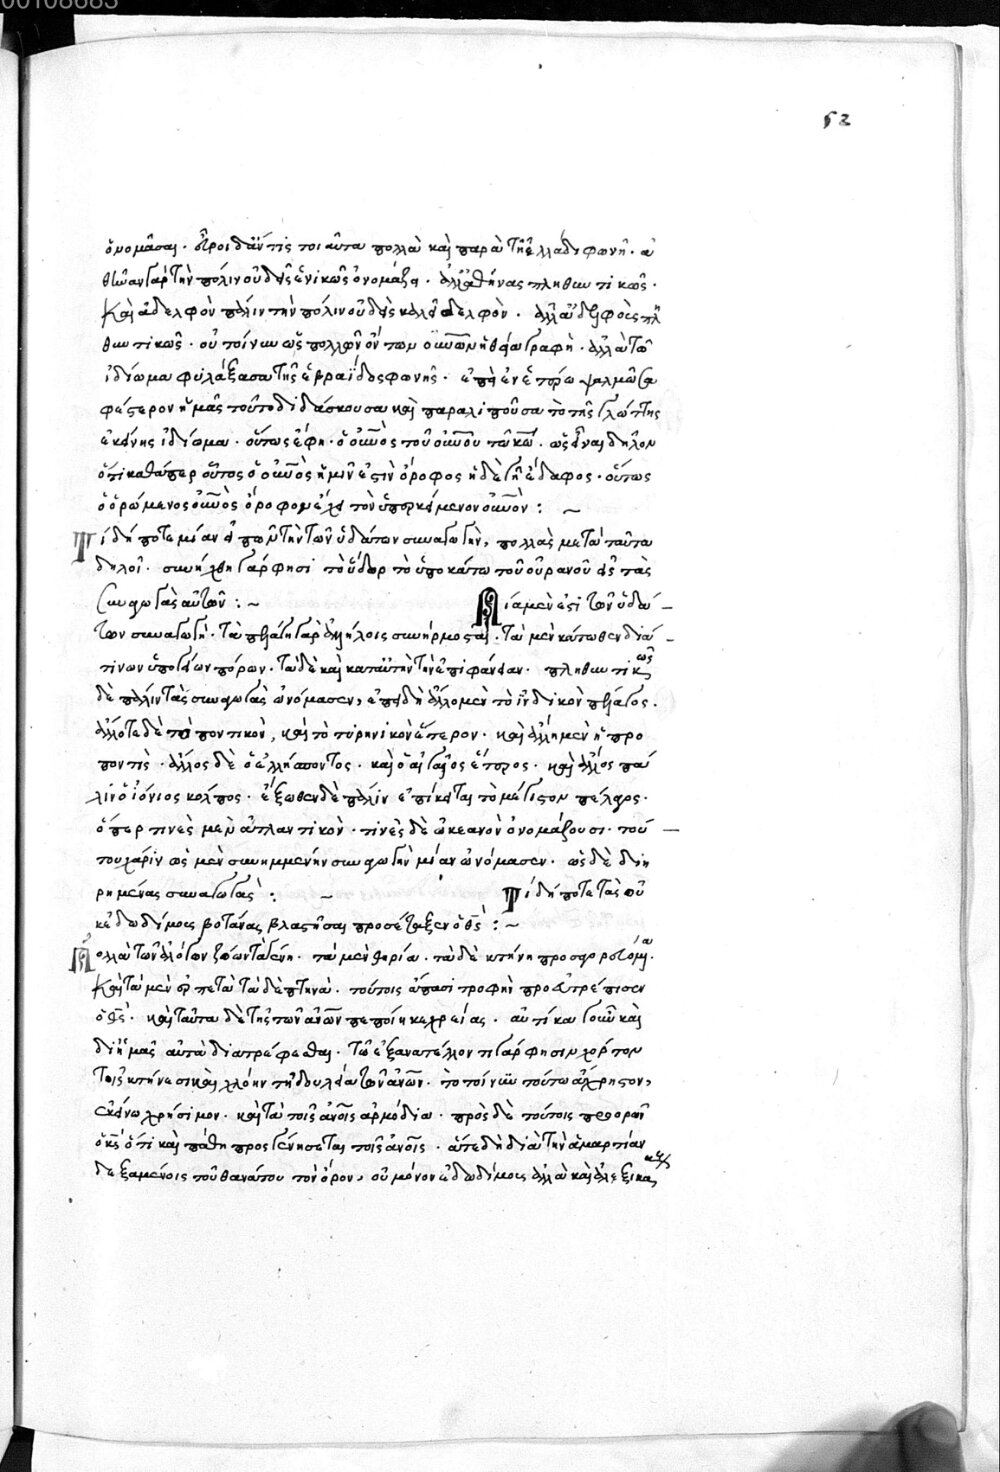 00108683
52
ὀνομᾶσαι. εὕροι δἄν τὶς τοιαῦτα πολλὰ καὶ παρὰ τῆ ἑλλάδι φωνῆ. ἀ
θῆναν γὰρ τὴν πόλιν οὐδεὶς ἑνικῶς ὀνομάζει. ἀλλ' ἀθήνας πληθυντικῶς.
καὶ ἀδελφὸν πάλιν τὴν πόλιν οὐδεὶς καλεῖ δελφὸν. ἀλλὰ δελφοὺς πλη
θυντικῶς. οὐ τοίνυν ὡς πολλῶν ὄντων οὐνῶν ἡ θεία γραφὴ. ἀλλὰ τὸ
ἰδίωμα φυλάξασα τῆς ἑβραΐδος φωνῆς. ἐπεὶ ἐν ἑτέρω ψαλμῶ σα
φέστερον ἡμᾶς τοῦτο διδάσκουσα καὶ παραλιποῦσα τὸ τῆς γλώττης
ἐκείνης ἰδίωμα. οὕτως ἔφη. ὁ οὐνὸς τοῦ οὐνοῦ τῶ κω. ὡς εἶναι δῆλον
ὅτι καθάπερ οὗτος ὁ οὐνὸς ἡμῖν ἐστὶν ὄροφος ἡ δὲ γῆ ἔδαφος. οὕτως
ὁ ὁρώμενος οὐνὸς ὄροφον ἔχει τὸν ὑπερκείμενον οὐνὸν : ~
Τί δή ποτε μίαν εἰπὼν τὴν τῶν ὑδάτων συναγωγὴν, πολλὰς μετὰ ταῦτα
δηλοῖ. συνήχθη γάρ φησι τὸ ὕδωρ τὸ ὑποκάτω τοῦ οὐρανοῦ εἰς τὰς
συναγωγὰς αὐτῶν : ~ Μία μέν ἐστι τῶν ὑδά
των συναγωγή. τὰ πελάγη γὰρ ἀλλήλοις συνήρμοσται. τὰ μὲν κάτωθεν διά
τινων ὑπογείων πόρων. τὰ δὲ καὶ κατ' αὐτὴν τὴν ἐπιφάνειαν. πληθυντικῶς
δὲ πάλιν τὰς συναγωγὰς ὠνόμασεν, ἐπειδὴ ἄλλο μὲν τὸ ἰνδικὸν πέλαγος.
ἄλλο τε δὲ τὸ ποντικὸν, καὶ τὸ τυρηνικὸν ἕτερον. καὶ ἄλλη μὲν ἡ προ
ποντὶς. ἄλλος δὲ ὁ ἑλλήσποντος. καὶ ὁ αἰγαῖος ἕτερος. καὶ ἄλλος πά
λιν ὁ ἰόνιος κόλπος. ἔξωθεν δὲ πάλιν ἐπίκειται τὸ μέγιστον πέλαγος.
ὅπερ τινὲς μὲν ἀτλαντικὸν. τινὲς δὲ ὠκεανὸν ὀνομάζουσι. τού
του χάριν ὡς μὲν συνημμένην συναγωγὴν μίαν ὠνόμασεν. ὡς δὲ διη
ρημένας συναγωγὰς : ~ Τί δή ποτε τὰς οὐ
κ ἐδωδίμους βοτάνας βλαστῆσαι προσέταξεν ὁ θς : ~
Πολλὰ τῶν ἀλόγων ζώων τὰ γένη. τὰ μὲν θηρία. τὰ δὲ κτήνη προσαγορευόμενα.
καὶ τὰ μὲν ἑρπετὰ τὰ δὲ πτηνὰ. τούτοις ἅπασι τροφὴν προευτρέπισεν
ὁ θς. καὶ ταῦτα δὲ τῆς τῶν ἀνων πεποίηκε χρείας. αὐτίκα γοῦν καὶ
δι' ἡμᾶς αὐτὰ διατρέφεσθαι. τῶ ἐξανατέλλοντι γάρ φησιν χόρτον
τοῖς κτήνεσι καὶ χλόην τῆ δουλεία τῶν ἀνων. τὸ τοίνυν τούτω ἄχρηστον,
ἐκείνω χρήσιμον. καὶ τὰ τοῖς ἀνοις ἁρμόδια. πρὸς δὲ τούτοις προορῶν
ὁ κς ὅτι καὶ πάθη προσγενήσεται τοῖς ἀνοις. ἅτε δὴ διὰ τὴν ἁμαρτίαν
δεξαμένοις τοῦ θανάτου τὸν ὅρον, οὐ μόνον ἐδωδίμους ἀλλὰ καὶ ἀλεξικάκους